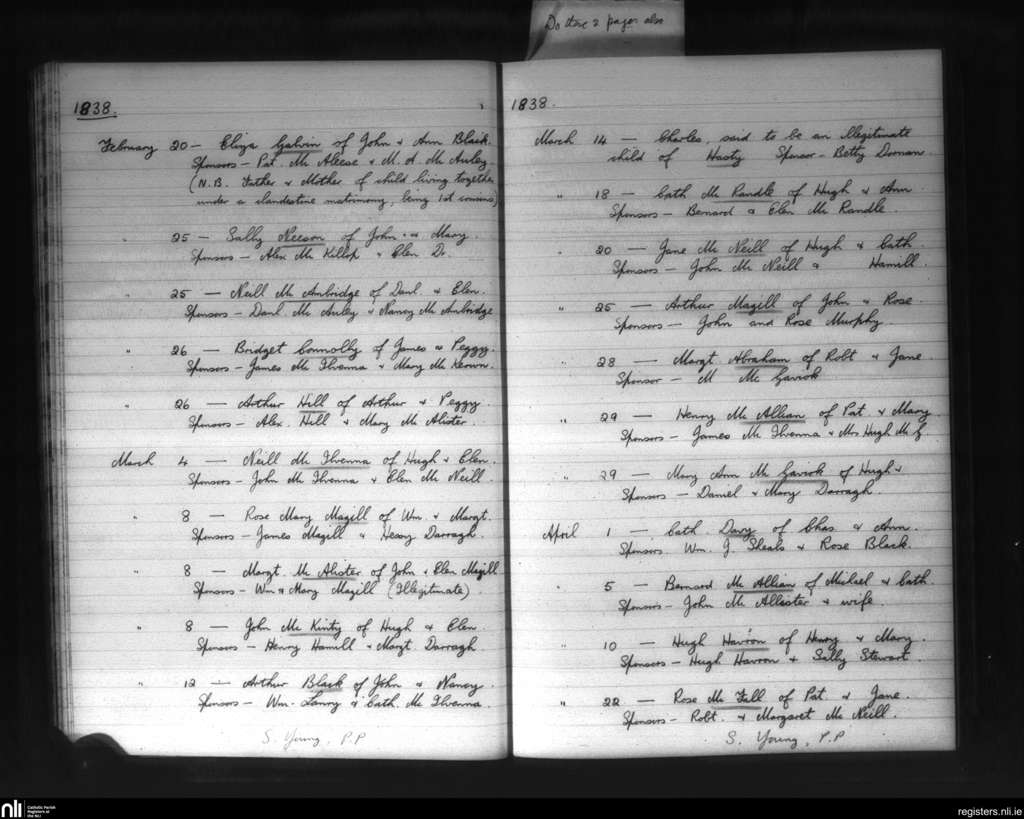 Do these 2 pages also
1838.
February 20 — Eliza Galvin of John & Ann Black.
Sponsors — Pat. Mc Aleese & M. A. Mc Auley.
(N.B. Father & Mother of child living together
under a clandestine matrimony, being 1st cousins)
" 25 — Sally Neeson of John & Mary.
Sponsors — Alex Mc Killop & Elen Do.
" 25 — Neill Mc Ambridge of Danl. & Elen.
Sponsors — Danl. Mc Auley & Nancy Mc Ambridge
" 26 — Bridget Connolly of James & Peggy.
Sponsors — James Mc Ilvenna & Mary Mc Keown.
" 26 — Arthur Hill of Arthur & Peggy
Sponsors — Alex. Hill & Mary Mc Alister.
March 4 — Neill Mc Ilvenna of Hugh & Elen.
Sponsors — John Mc Ilvenna & Elen Mc Neill.
" 8 — Rose Mary Magill of Wm. & Margt.
Sponsors — James Magill & Darragh.
" 8 — Margt. Mc Alister of John & Elen Magill
Sponsors — Wm & Mary Magill (Illegitimate).
" 8 — John Mc Kinty of Hugh & Elen.
Sponsors — Henry Hamill & Margt Darragh.
" 12 — Arthur Black of John & Nancy.
Sponsors — Wm. Lowry & Cath. Mc Ilvenna.
S. Young, P.P
1838.
March 14 — Charles, said to be an illegitimate
child of Hasty Sponsor — Betty Dornan.
" 18 — Cath Mc Randle of Hugh & Ann.
Sponsors — Bernard & Elen Mc Randle.
" 20 — Jane Mc Neill of Hugh & Cath.
Sponsors — John Mc Neill & Hamill.
" 25 — Arthur Magill of John & Rose.
Sponsors — John and Rose Murphy.
" 28 — Margt Abraham of Robt & Jane.
Sponsor — M Mc Gavick
" 29 — Henry Mc Allian of Pat. & Mary.
Sponsors — James Mc Ilvenna & Mrs Hugh Mc G.
" 29 — Mary Ann Mc Gavick of Hugh &
Sponsors — Daniel & Mary Darragh.
April 1 — Cath. Davy of Chas. & Ann.
Sponsors. Wm. J. Sheals & Rose Black.
" 5 — Bernard Mc Allian of Michael & Cath.
Sponsors — John Mc Allister & wife.
" 10 — Hugh Havron of Henry & Mary.
Sponsors — Hugh Havron & Sally Stewart.
" 22 — Rose Mc Fall of Pat. & Jane.
Sponsors — Robt. & Margaret Mc Neill.
S. Young, P.P
nli Catholic Parish
Registers at
the NLI
registers.nli.ie